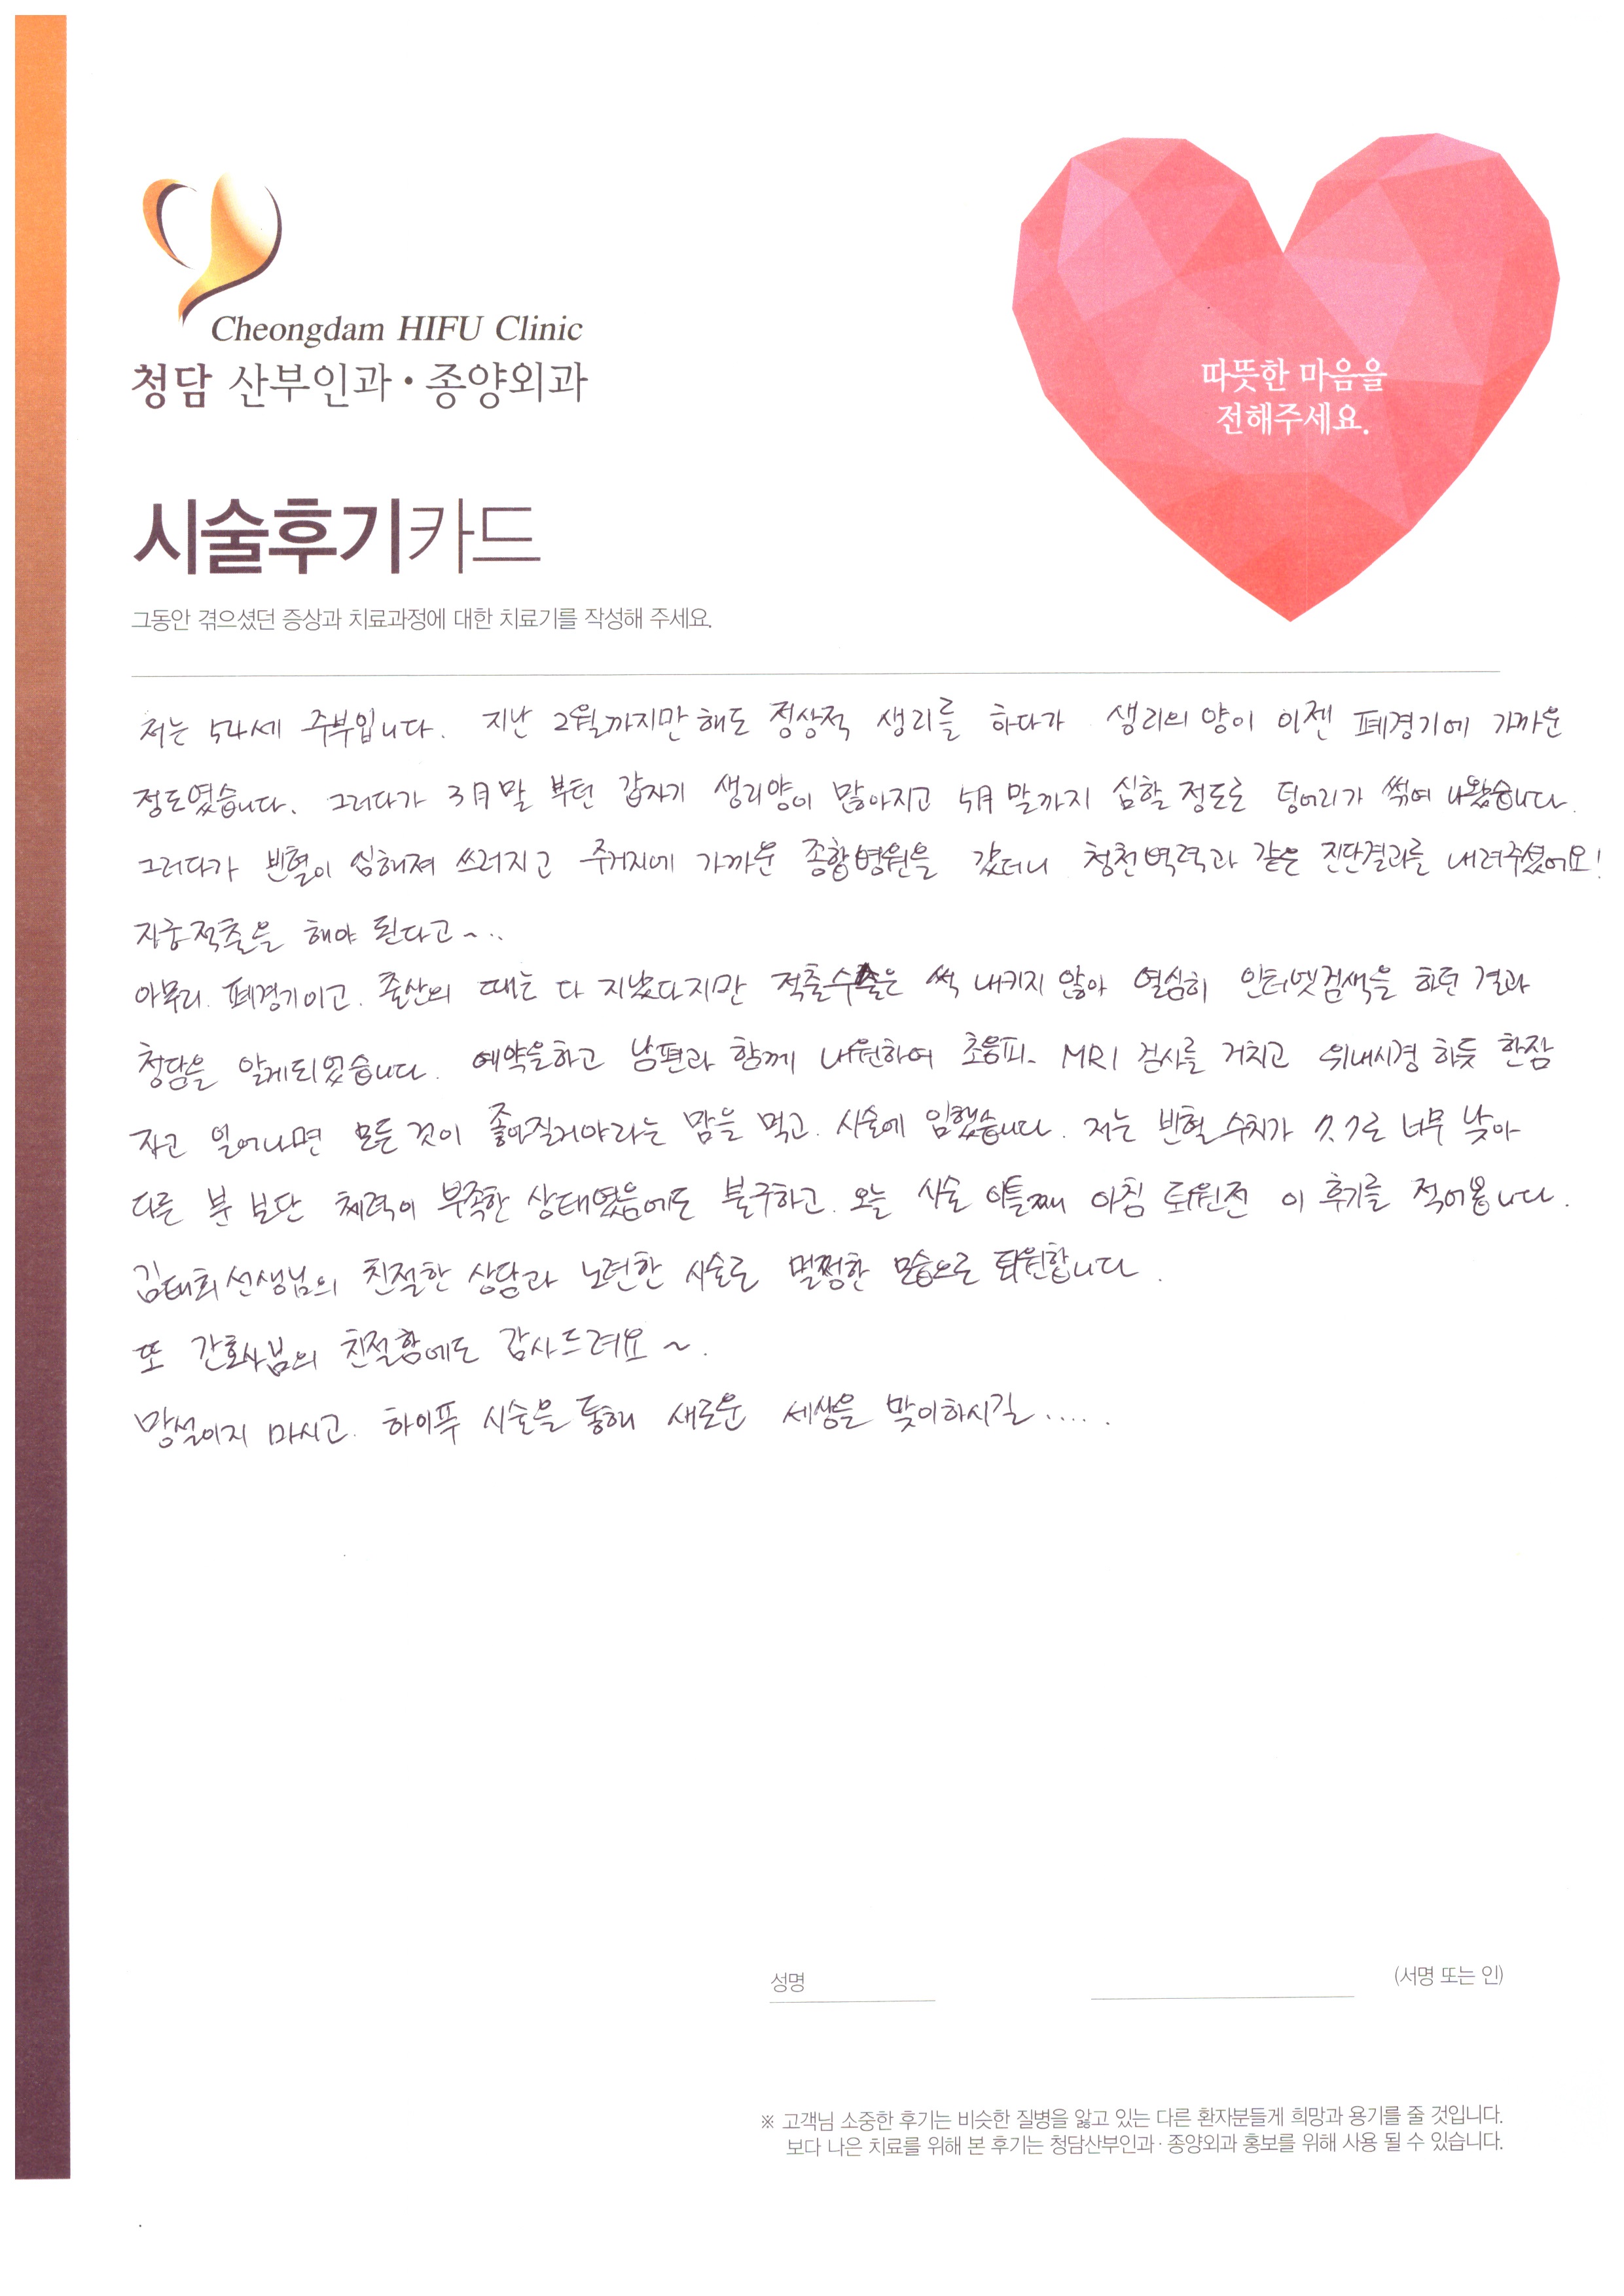 Cheongdam HIFU Clinic
청담 산부인과·종양외과
따뜻한 마음을
전해주세요.
시술후기카드
그동안 겪으셨던 증상과 치료과정에 대한 치료기를 작성해 주세요.
저는 54세 주부입니다. 지난 2월까지만 해도 정상적 생리를 하다가 생리의 양이 이젠 폐경기에 가까운
정도였습니다. 그러다가 3月말 부턴 갑자기 생리양이 많아지고 5月 말까지 심할 정도로 덩어리가 썪여 나왔습니다.
그러다가 빈혈이 심해져 쓰러지고 주거지에 가까운 종합병원을 갔더니 청천벽력과 같은 진단결과를 내려주셨어요!
자궁적출을 해야 된다고~..
아무리. 폐경기이고. 출산의 때는 다 지났다지만 적출수술은 썩 내키지 않아 열심히 인터넷검색을 하던 결과
청담을 알게되었습니다. 예약을하고 남편과 함께 내원하여 초음파. MRI 검사를 거치고 위내시경 하듯 한잠
자고 일어나면 모든 것이 좋아질거야라는 맘을 먹고. 시술에 임했습니다. 저는 빈혈 수치가 7.7로 너무 낮아
다른 분 보단 체력이 부족한 상태였음에도 불구하고. 오늘 시술 이틀째 아침 퇴원전 이 후기를 적어봅니다.
김태희선생님의 친절한 상담과 노련한 시술로 멀쩡한 모습으로 퇴원합니다.
또 간호사분의 친절함에도 감사드려요~.
망설이지 마시고. 하이푸 시술을 통해 새로운 세상을 맞이하시길......
성명 (서명 또는 인)
※ 고객님 소중한 후기는 비슷한 질병을 앓고 있는 다른 환자분들께 희망과 용기를 줄 것입니다.
보다 나은 치료를 위해 본 후기는 청담산부인과·종양외과 홍보를 위해 사용 될 수 있습니다.